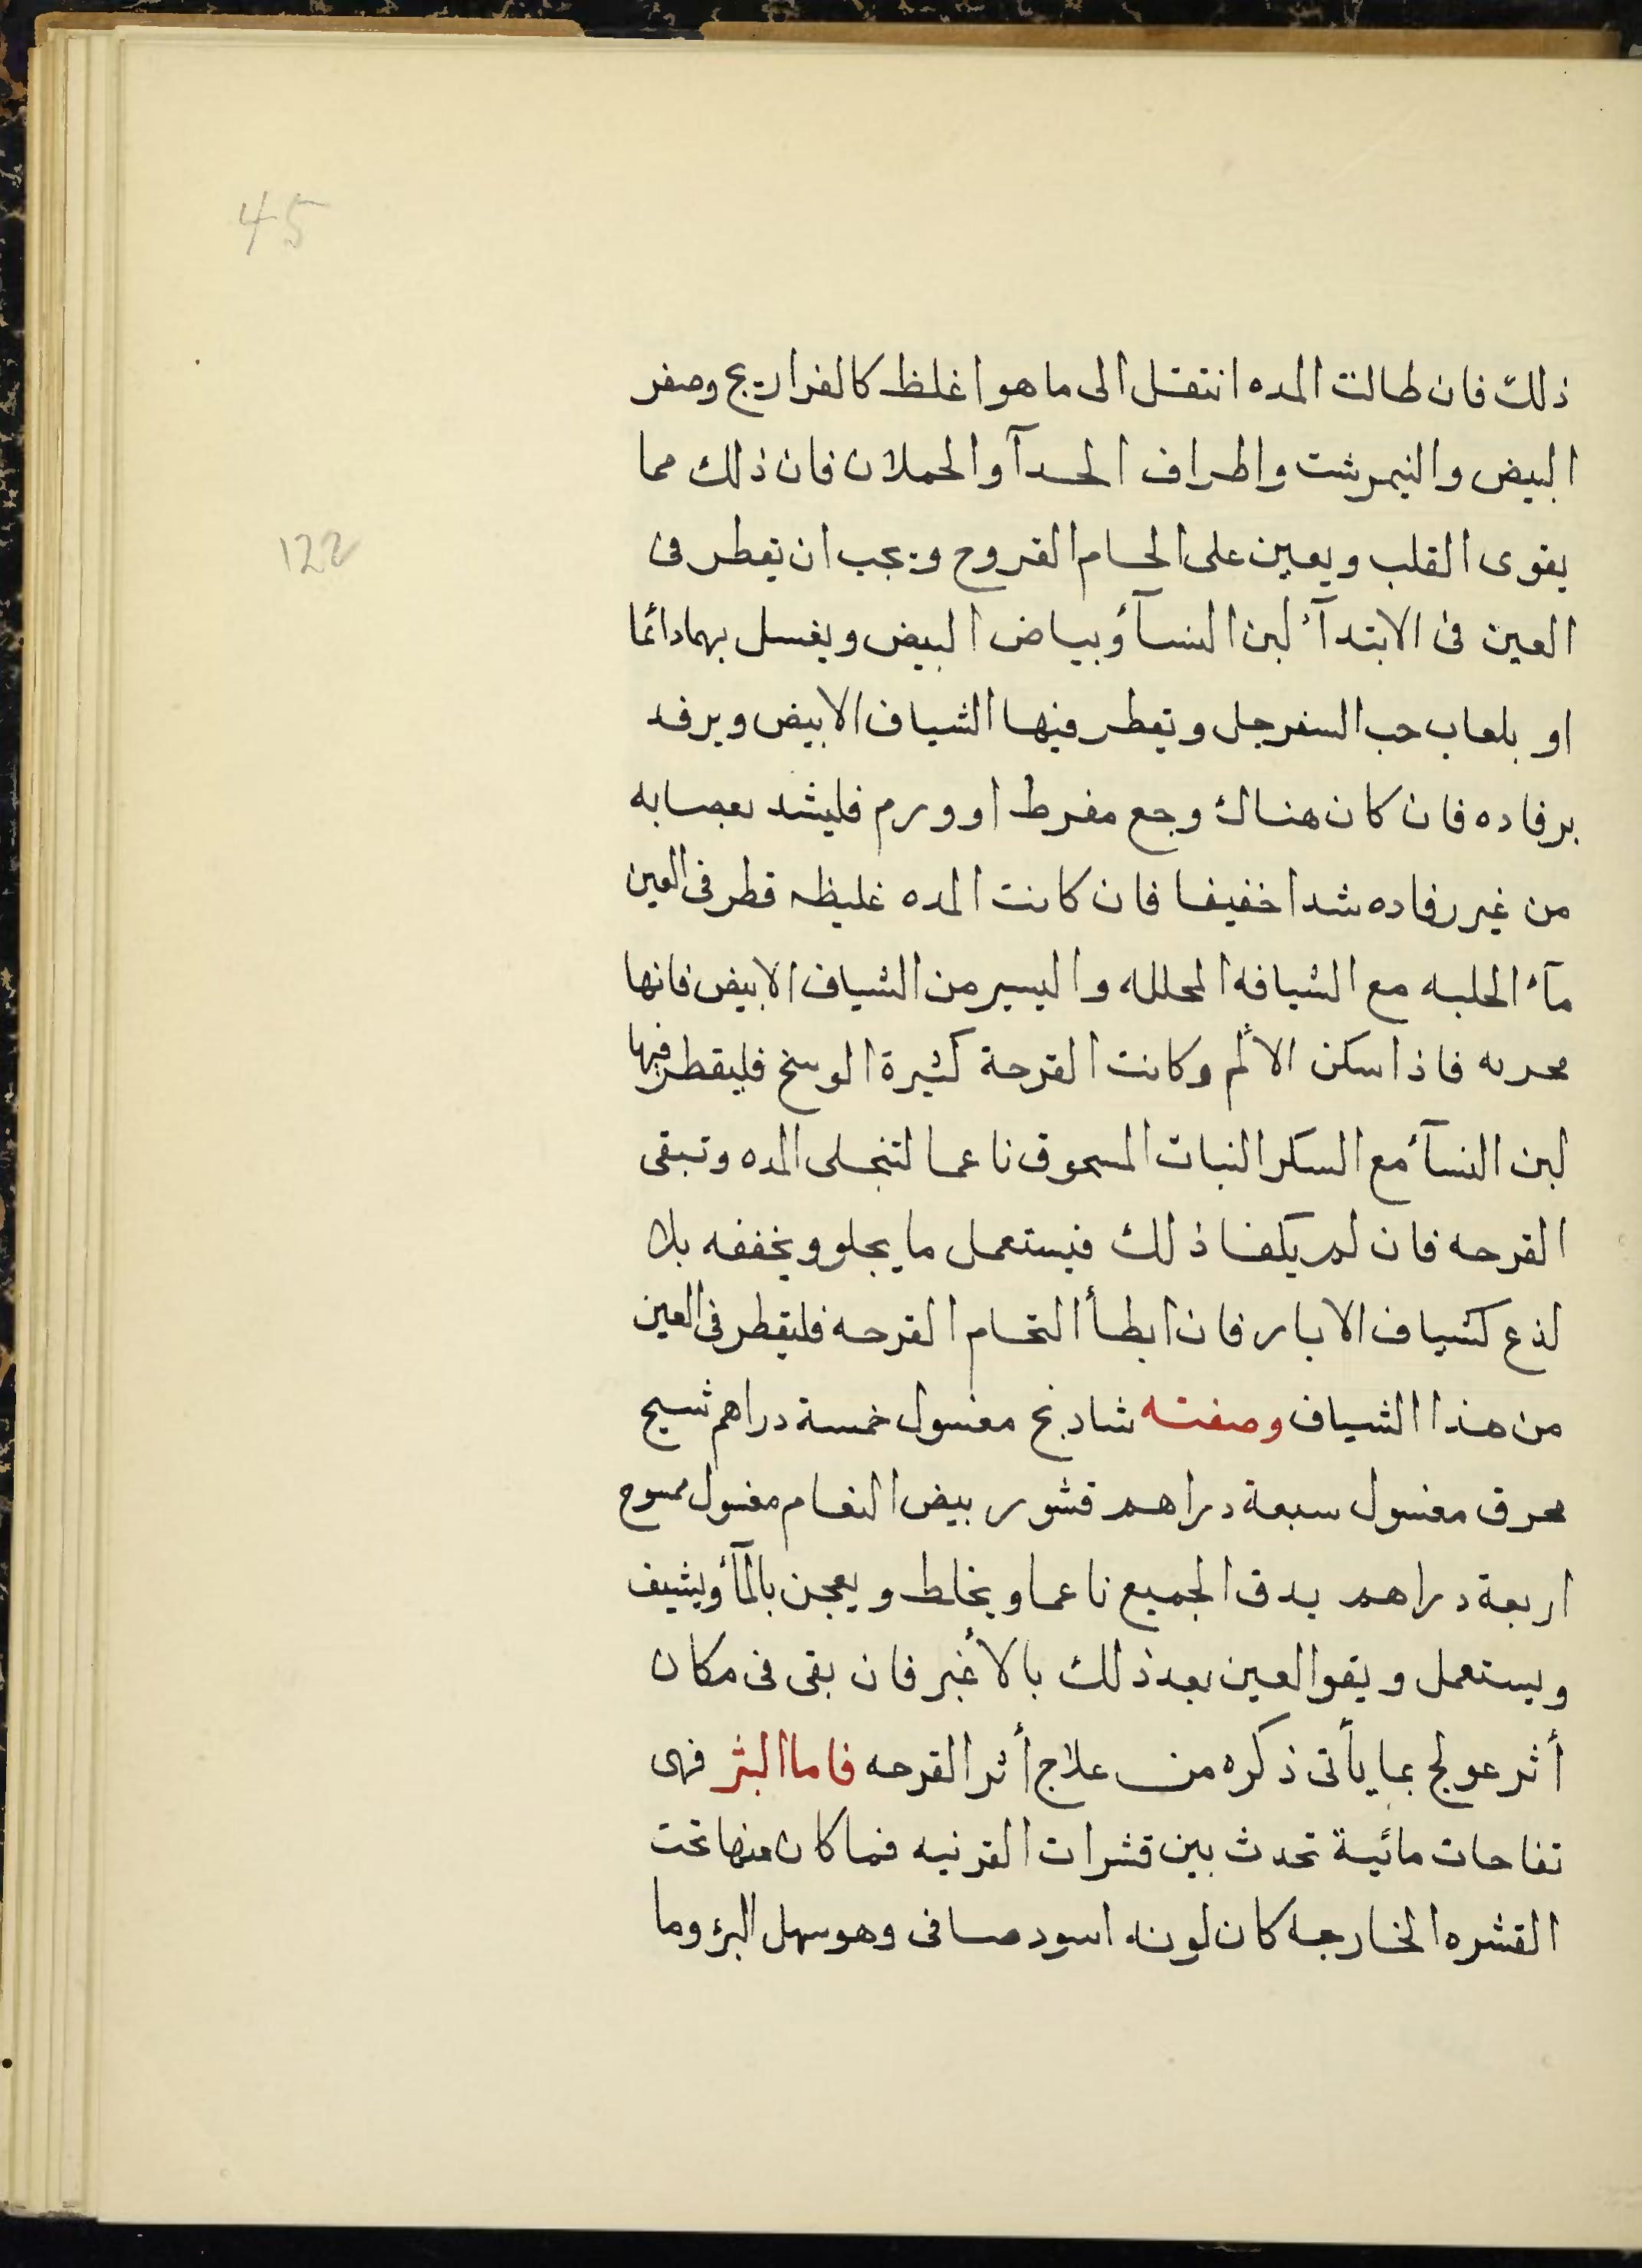 45
ذلك فان طالت المده انتقل الى ما هو اغلظ كالفراريج وصفر
البيض والنيمرشت واطراف الحدآ والحملان فان ذلك مما
يقوى القلب ويعين على الحام القروح ويجب ان يقطر فى
122
العين فى الابتدآء لبن النسآء وبياض البيض ويغسل بهما دائما
او بلعاب حب السفرجل ويقطر فيها الشياف الابيض ويرفد
برفاده فان كان هناك وجع مفرط او ورم فليشد بعصابه
من غير رفاده شدا خفيفا فان كانت المده غليظه قطر فى العين
مآء الحلبه مع الشيافه المحلله واليسير من الشياف الابيض فانها
محربه فاذا سكن الألم وكانت القرحة كثيرة الوسخ فليقطر فيها
لبن النسآء مع السكر النبات المسحوق ناعما لتنجلى المده وتبقى
القرحه فان لم يكفا ذلك فيستعمل ما يجلو ويخففه بلا
لذع كشياف الابار فان ابطأ التحام القرحه فليقطر فى العين
من هذا الشياف وصفته شادنج مغسول خمسة دراهم شيح
محرق مغسول سبعة دراهم قشور بيض النعام مغسول ممسوح
اربعة دراهم يدق الجميع ناعما ويخلط ويعجن بالمآء ويشيف
ويستعمل ويقوا العين بعد ذلك بالأغبر فان بقى فى مكان
أثر عولج بما يأتى ذكره من علاج أثر القرحه فاما البثر فهى
تفاحات مائية تحدث بين قشرات القرنيه فما كان منها تحت
القشره الخارجه كان لونه اسود صافى وهو سهل البرؤ وما